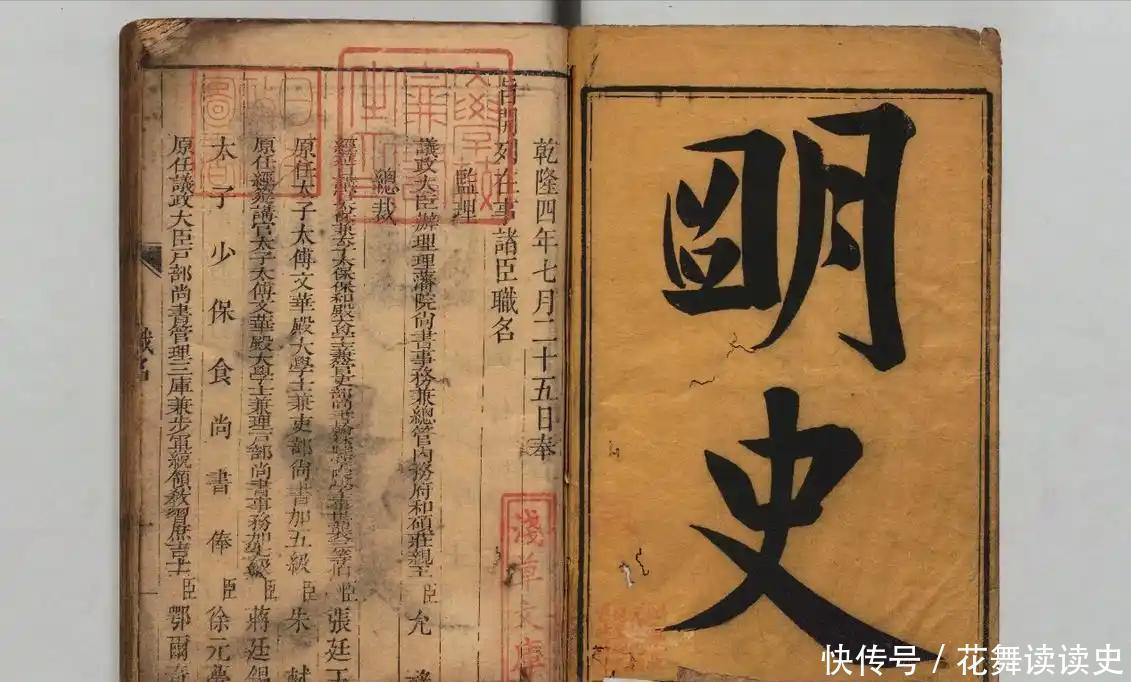 明史
乾隆四年七月二十五日奉
旨開列在事諸臣職名
監理
議政大臣辦理理藩院尚書事務兼總管內務府和碩莊親王臣允
總裁
經筵日講官太保兼太子太保保和殿大學士兼管吏部尚書翰林院掌院學士事世襲三等伯臣張廷玉
原任太子太傅文華殿大學士兼吏部尚書加五級臣朱軾
原任經筵講官太子太傅文華殿大學士兼理戶部尚書事務加七級臣蔣廷錫
太子少保食尚書俸臣徐元夢
原任議政大臣戶部尚書管理三庫兼步軍統領教習庶吉士臣鄂爾奇
職名
淺草文庫
快传号 / 花舞读读史